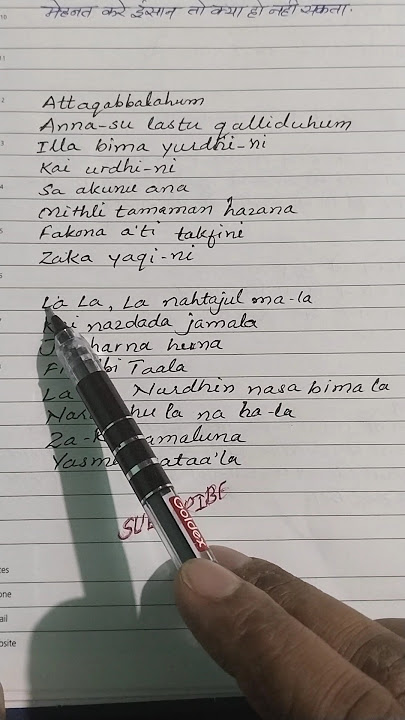 मेहनत करे ईसान तो क्या हो नही सकता.
Attaqabbalahum
Anna-su lastu qalliduhum
Illa bima yurdhi-ni
Kai urdhi-ni
Sa akunu ana
mithli tamaman hazana
Fakona a'ti takfini
Zaka yaqi-ni
La La, La nahtajul ma-la
nazdada jamala
harna huna
bi Taala
La Nurdhin nasa bima la
hu la na ha-la
Za- amaluna
Yasm ataa'la
SU IBE
Goldex